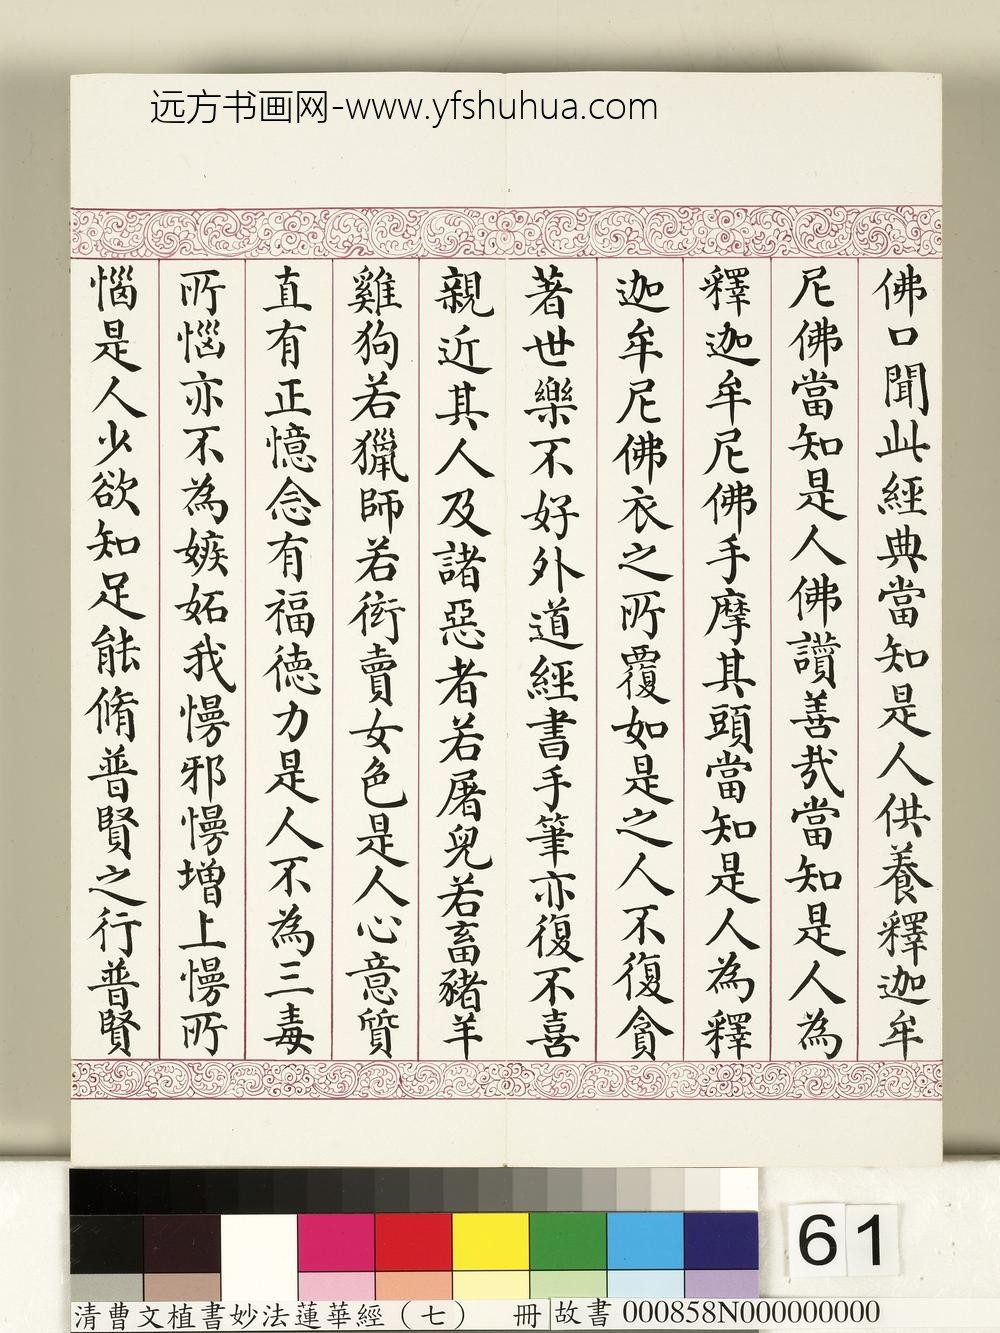 远方书画网-www.yfshuhua.com
佛口聞此經典當知是人供養釋迦牟
尼佛當知是人佛讚善哉當知是人為
釋迦牟尼佛手摩其頭當知是人為釋
迦牟尼佛衣之所覆如是之人不復貪
著世樂不好外道經書手筆亦復不喜
親近其人及諸惡者若屠兒若畜豬羊
雞狗若獵師若衒賣女色是人心意質
直有正憶念有福德力是人不為三毒
所惱亦不為嫉妬我慢邪慢增上慢所
惱是人少欲知足能脩普賢之行普賢
61
清曹文植書妙法蓮華經（七） 冊 故書 000858N000000000